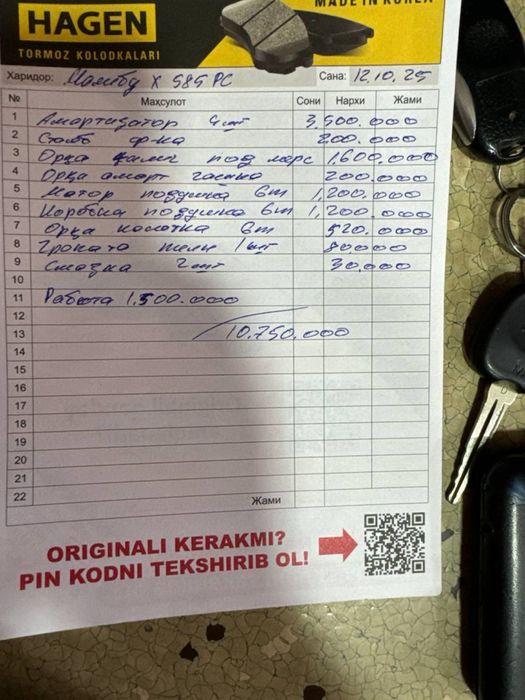 MADE IN KOREA
HAGEN
TORMOZ KOLODKALARI
Харидор: Малибу X 585 PC Сана: 12.10.25
№ Маҳсулот Сони Нархи Жами
1 Амартизатор 4шт 3,500.000
2 200.000
3 Орқа под 1,600.000
4 Орқа аморт 200.000
5 Мотор подушка 6т 1,200.000
6 Коробка подушка 6т 1,200.000
7 Орқа колотка 6т 520.000
8 1шт 80000
9 Смазка 2шт 30.000
10
11 Работа 1.500.000
12
13 10.750.000
14
15
16
17
18
19
20
21
22 Жами
ORIGINALI KERAKMI?
PIN KODNI TEKSHIRIB OL!